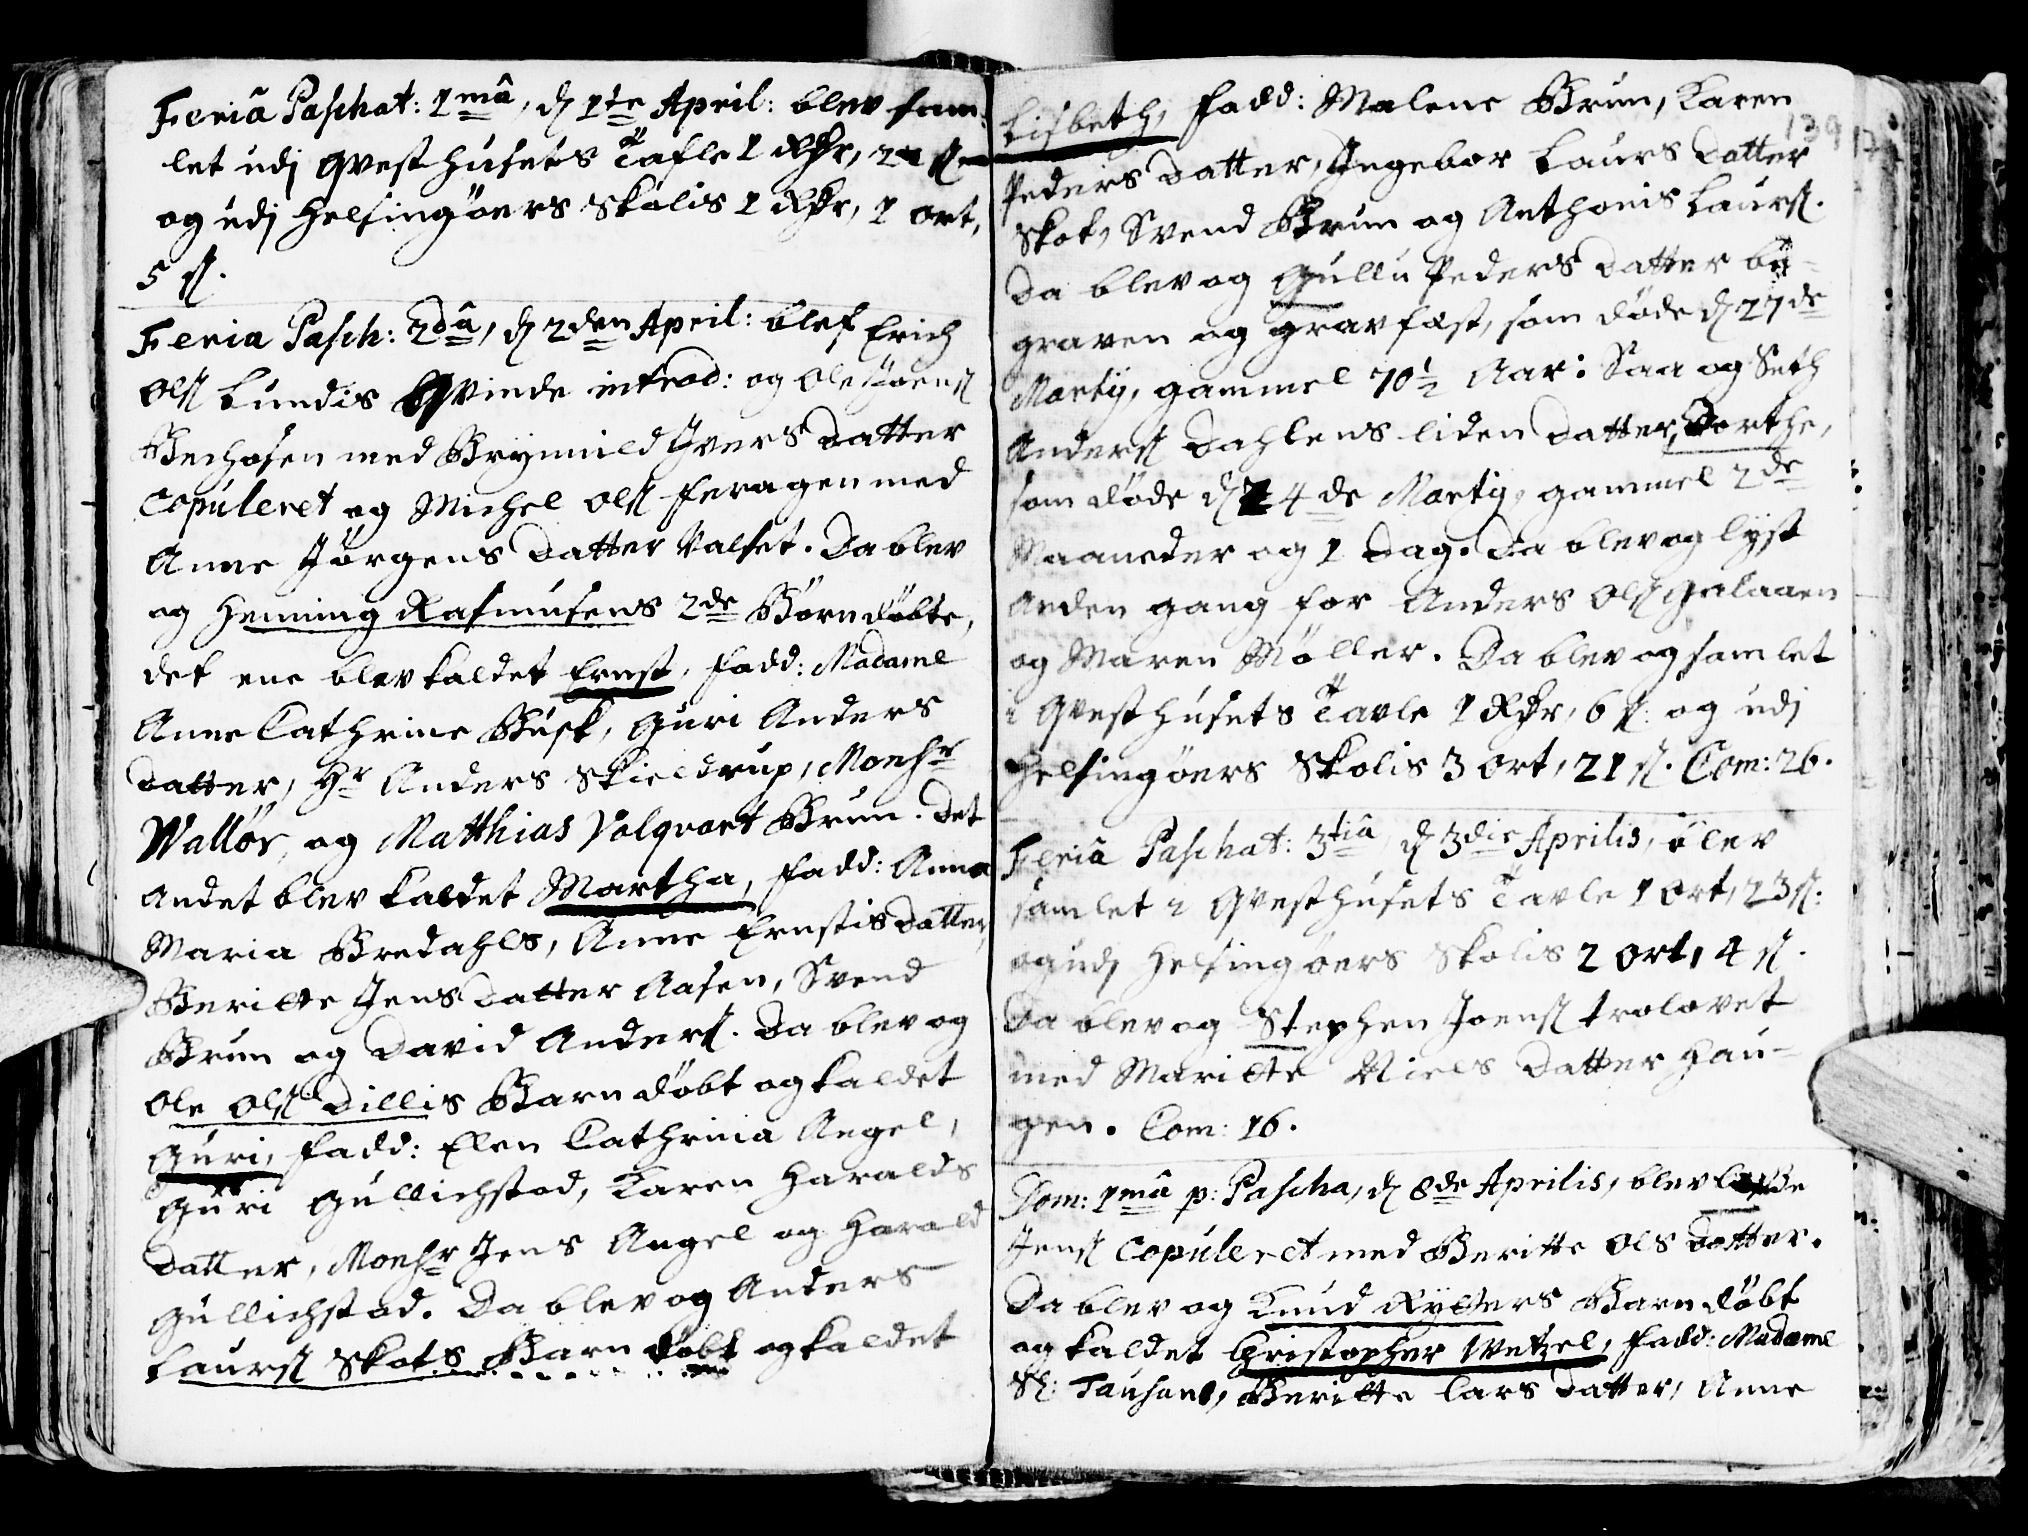 Feriâ Paschat: 1mâ, d 1te April: blev sam-
let udj Qvesthusets Tafle 1 Rdr, 2
og udj Helsingöers Skolis 1 Rdr, 1 ort,
5 ſl.
Feria Pasch: 2dâ, d 2den April: blef Erich
Olſ Lundis Qvinde introd: og Ole Joenſ
Berhosen med Brynnild Ivers Datter
Copuleret og Michel Olſ Feragen med
Anne Jörgens Datter Valset. Da blev
og Henning Rasmusens 2de Börn döbte,
det ene blev kaldet Ernst, fadd: Madame
Anne Cathrine Busk, Guri Anders
Datter, Hr Anders Skieldrup, Monsr
Wallör, og Matthias Volqvart Brun. Det
andet blev kaldet Martha, fadd: Anna
Maria Bredahls, Anne Ernstis Datter,
Beritte Jens Datter Aasen, Svend
Brun og David Anderſ. Da blev og
Ole Olſ Dillis Barn döbt og kaldet
Guri, fadd: Elen Cathrina Angel,
Guri Gullichstad, Karen Haralds
Datter, Monsr Jens Angel og Harald
Gullichstad. Da blev og Anders
Laurſ Skots Barn döbt og kaldet
139
Lisbeth, fadd: Malene Brun, Karen
Peders Datter, Ingebor Laurs Datter
Skot, Svend Brun og Anthonis Laurſ.
Da blev og Gullu Peders Datter be-
graven og gravfæst, som döde d 27de
Martij, gammel 70½ Aar: Saa og Seth
Anderſ Dahlens liden Datter, Dorthe,
som döde d 4de Martij, gammel 2de
Maaneder og 1 Dag. Da blev og lyst
Anden gang for Anders Olſ Galaaen
og Maren Möller. Da blev og samlet
i Qvesthusets Tavle 1 Rdr, 6 ſl: og udj
Helsingöers Skolis 3 Ort, 21 ſl. Com: 26.
Feriâ Paschat: 3tiâ, d 3die Aprilis, blev
samlet i Qvesthusets Tavle 1 Ort, 23 ſl:
og udj Helsingöers Skolis 2 Ort, 4 ſl.
Da blev og Stephen Joenſ trolovet
med Maritte Niels Datter Hau-
gen. Com: 16.
Dom: 1mâ p: Pascha, d 8de Aprilis, blev
Jenſ Copuleret med Beritte Ols Datter.
Da blev og Knud Rytters Barn döbt
og kaldet Christopher Wetzel, fadd: Madame
Sl: Tausans, Beritte Lars Datter, Anne